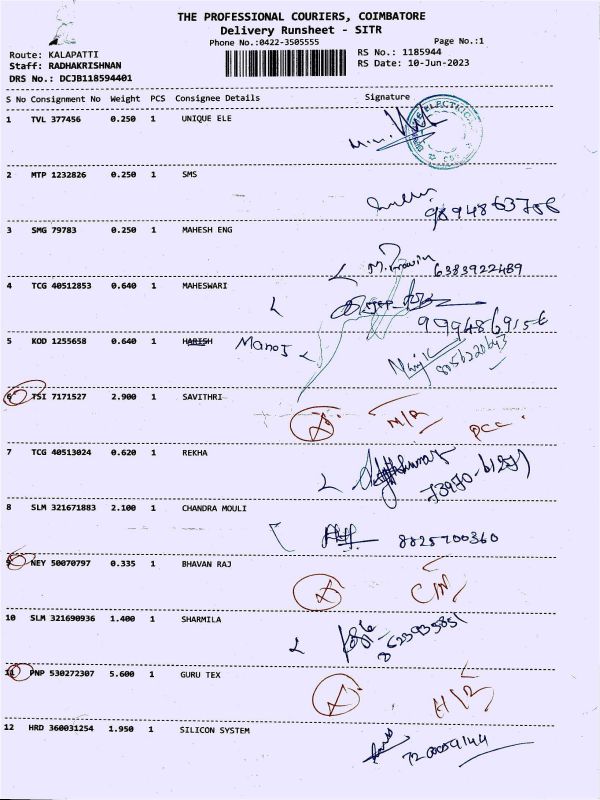 THE PROFESSIONAL COURIERS, COIMBATORE
Delivery Runsheet - SITR
Phone No.:0422-3505555
Page No.:1
Route: KALAPATTI
Staff: RADHAKRISHNAN
DRS No.: DCJB118594401
RS No.: 1185944
RS Date: 10-Jun-2023
S No Consignment No Weight PCS Consignee Details Signature
1 TVL 377456 0.250 1 UNIQUE ELE
2 MTP 1232826 0.250 1 SMS
9894863756
3 SMG 79783 0.250 1 MAHESH ENG
6383922489
4 TCG 40512853 0.640 1 MAHESWARI
9994869156
5 KOD 1255658 0.640 1 HARISH Manoj
8056220643
6 TSI 7171527 2.900 1 SAVITHRI
7 TCG 40513024 0.620 1 REKHA
8 SLM 321671883 2.100 1 CHANDRA MOULI
8825700360
9 NEY 50070797 0.335 1 BHAVAN RAJ
10 SLM 321690936 1.400 1 SHARMILA
11 PNP 530272307 5.600 1 GURU TEX
12 HRD 360031254 1.950 1 SILICON SYSTEM